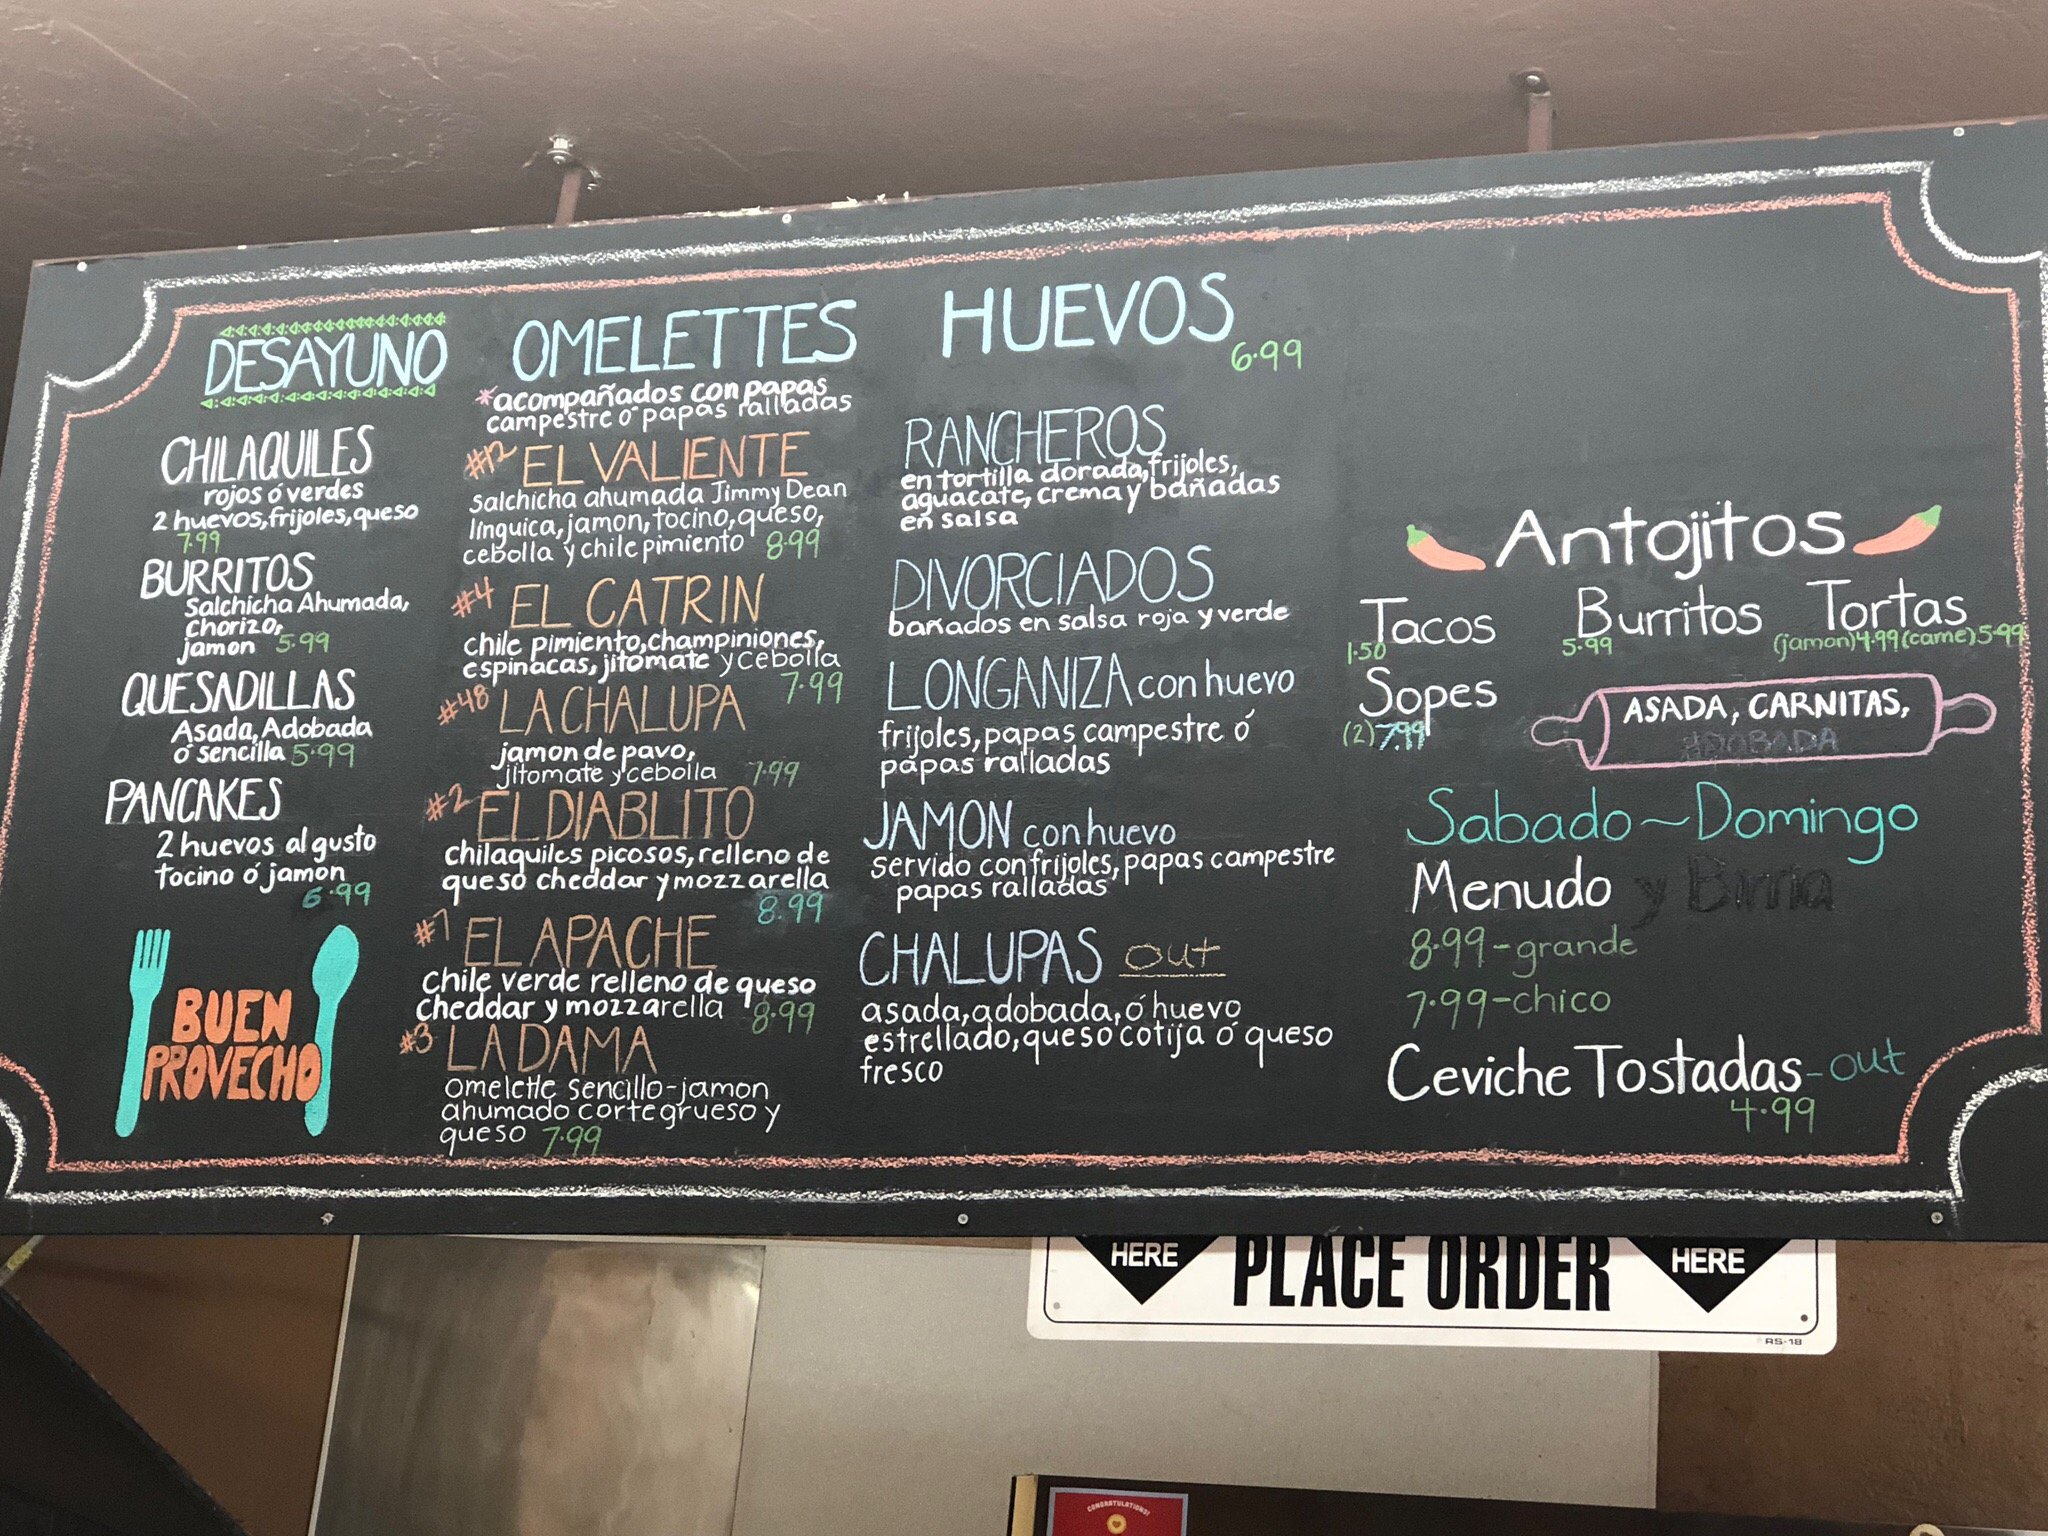 DESAYUNO
CHILAQUILES
rojos ó verdes
2 huevos, frijoles, queso
7.99
BURRITOS
Salchicha Ahumada,
chorizo,
jamon 5.99
QUESADILLAS
Asada, Adobada
ó sencilla 5.99
PANCAKES
2 huevos al gusto
tocino ó jamon
6.99
BUEN
PROVECHO
OMELETTES
*acompañados con papas
campestre ó papas ralladas
#12 EL VALIENTE
Salchicha ahumada Jimmy Dean
linguica, jamon, tocino, queso,
cebolla y chile pimiento 8.99
#4 EL CATRIN
chile pimiento, champiniones,
espinacas, jitomate y cebolla
7.99
#48 LA CHALUPA
jamon de pavo,
jitomate y cebolla 7.99
#2 EL DIABLITO
chilaquiles picosos, relleno de
queso cheddar y mozzarella
8.99
#1 EL APACHE
Chile verde relleno de queso
cheddar y mozzarella 8.99
#3 LA DAMA
Omelette Sencillo-jamon
ahumado corte grueso y
queso 7.99
HUEVOS
6.99
RANCHEROS
en tortilla dorada, frijoles,
aguacate, crema y bañadas
en salsa
DIVORCIADOS
bañados en salsa roja y verde
LONGANIZA con huevo
frijoles, papas campestre ó
papas ralladas
JAMON con huevo
servido con frijoles, papas campestre
papas ralladas
CHALUPAS out
asada, adobada, ó huevo
estrellado, queso cotija ó queso
fresco
Antojitos
Tacos Burritos Tortas
1.50 5.99 (jamon) 4.99 (carne) 5.99
Sopes
(2) 7.99
ASADA, CARNITAS,
ADOBADA
Sabado~Domingo
Menudo y Birria
8.99-grande
7.99-chico
Ceviche Tostadas-out
4.99
HERE PLACE ORDER HERE
RS-18
CONGRATULATIONS!